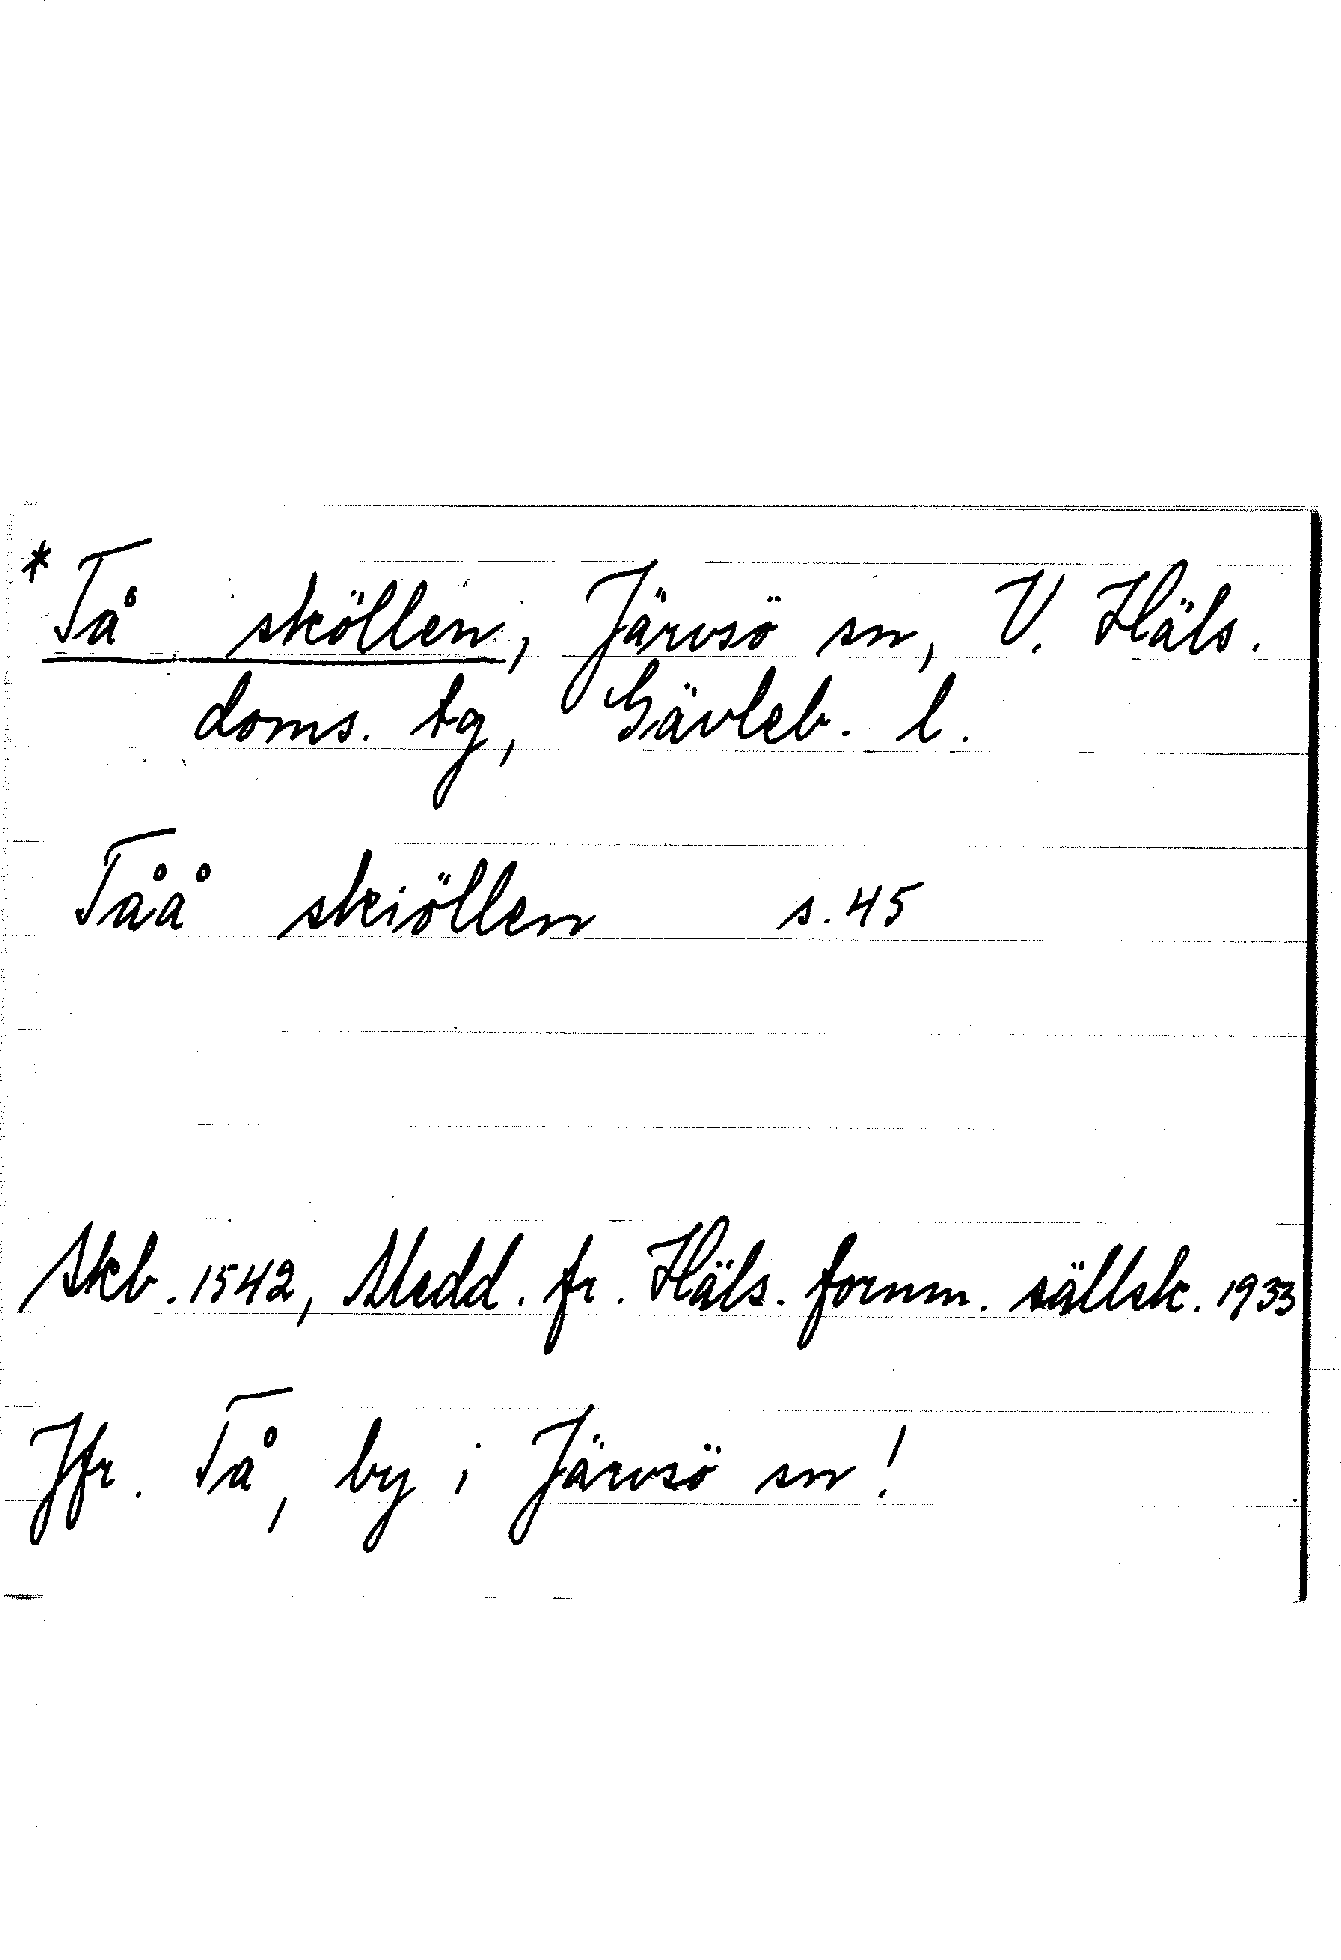 *Tå sköllen, Järvsö sn, V. Häls.
doms. tg, Gävleb. l.
Tåå skiöllen s. 45
Skb. 1542, Medd. fr. Häls. fornm. sällsk. 1933
Jfr. Tå, by i Järvsö sn!